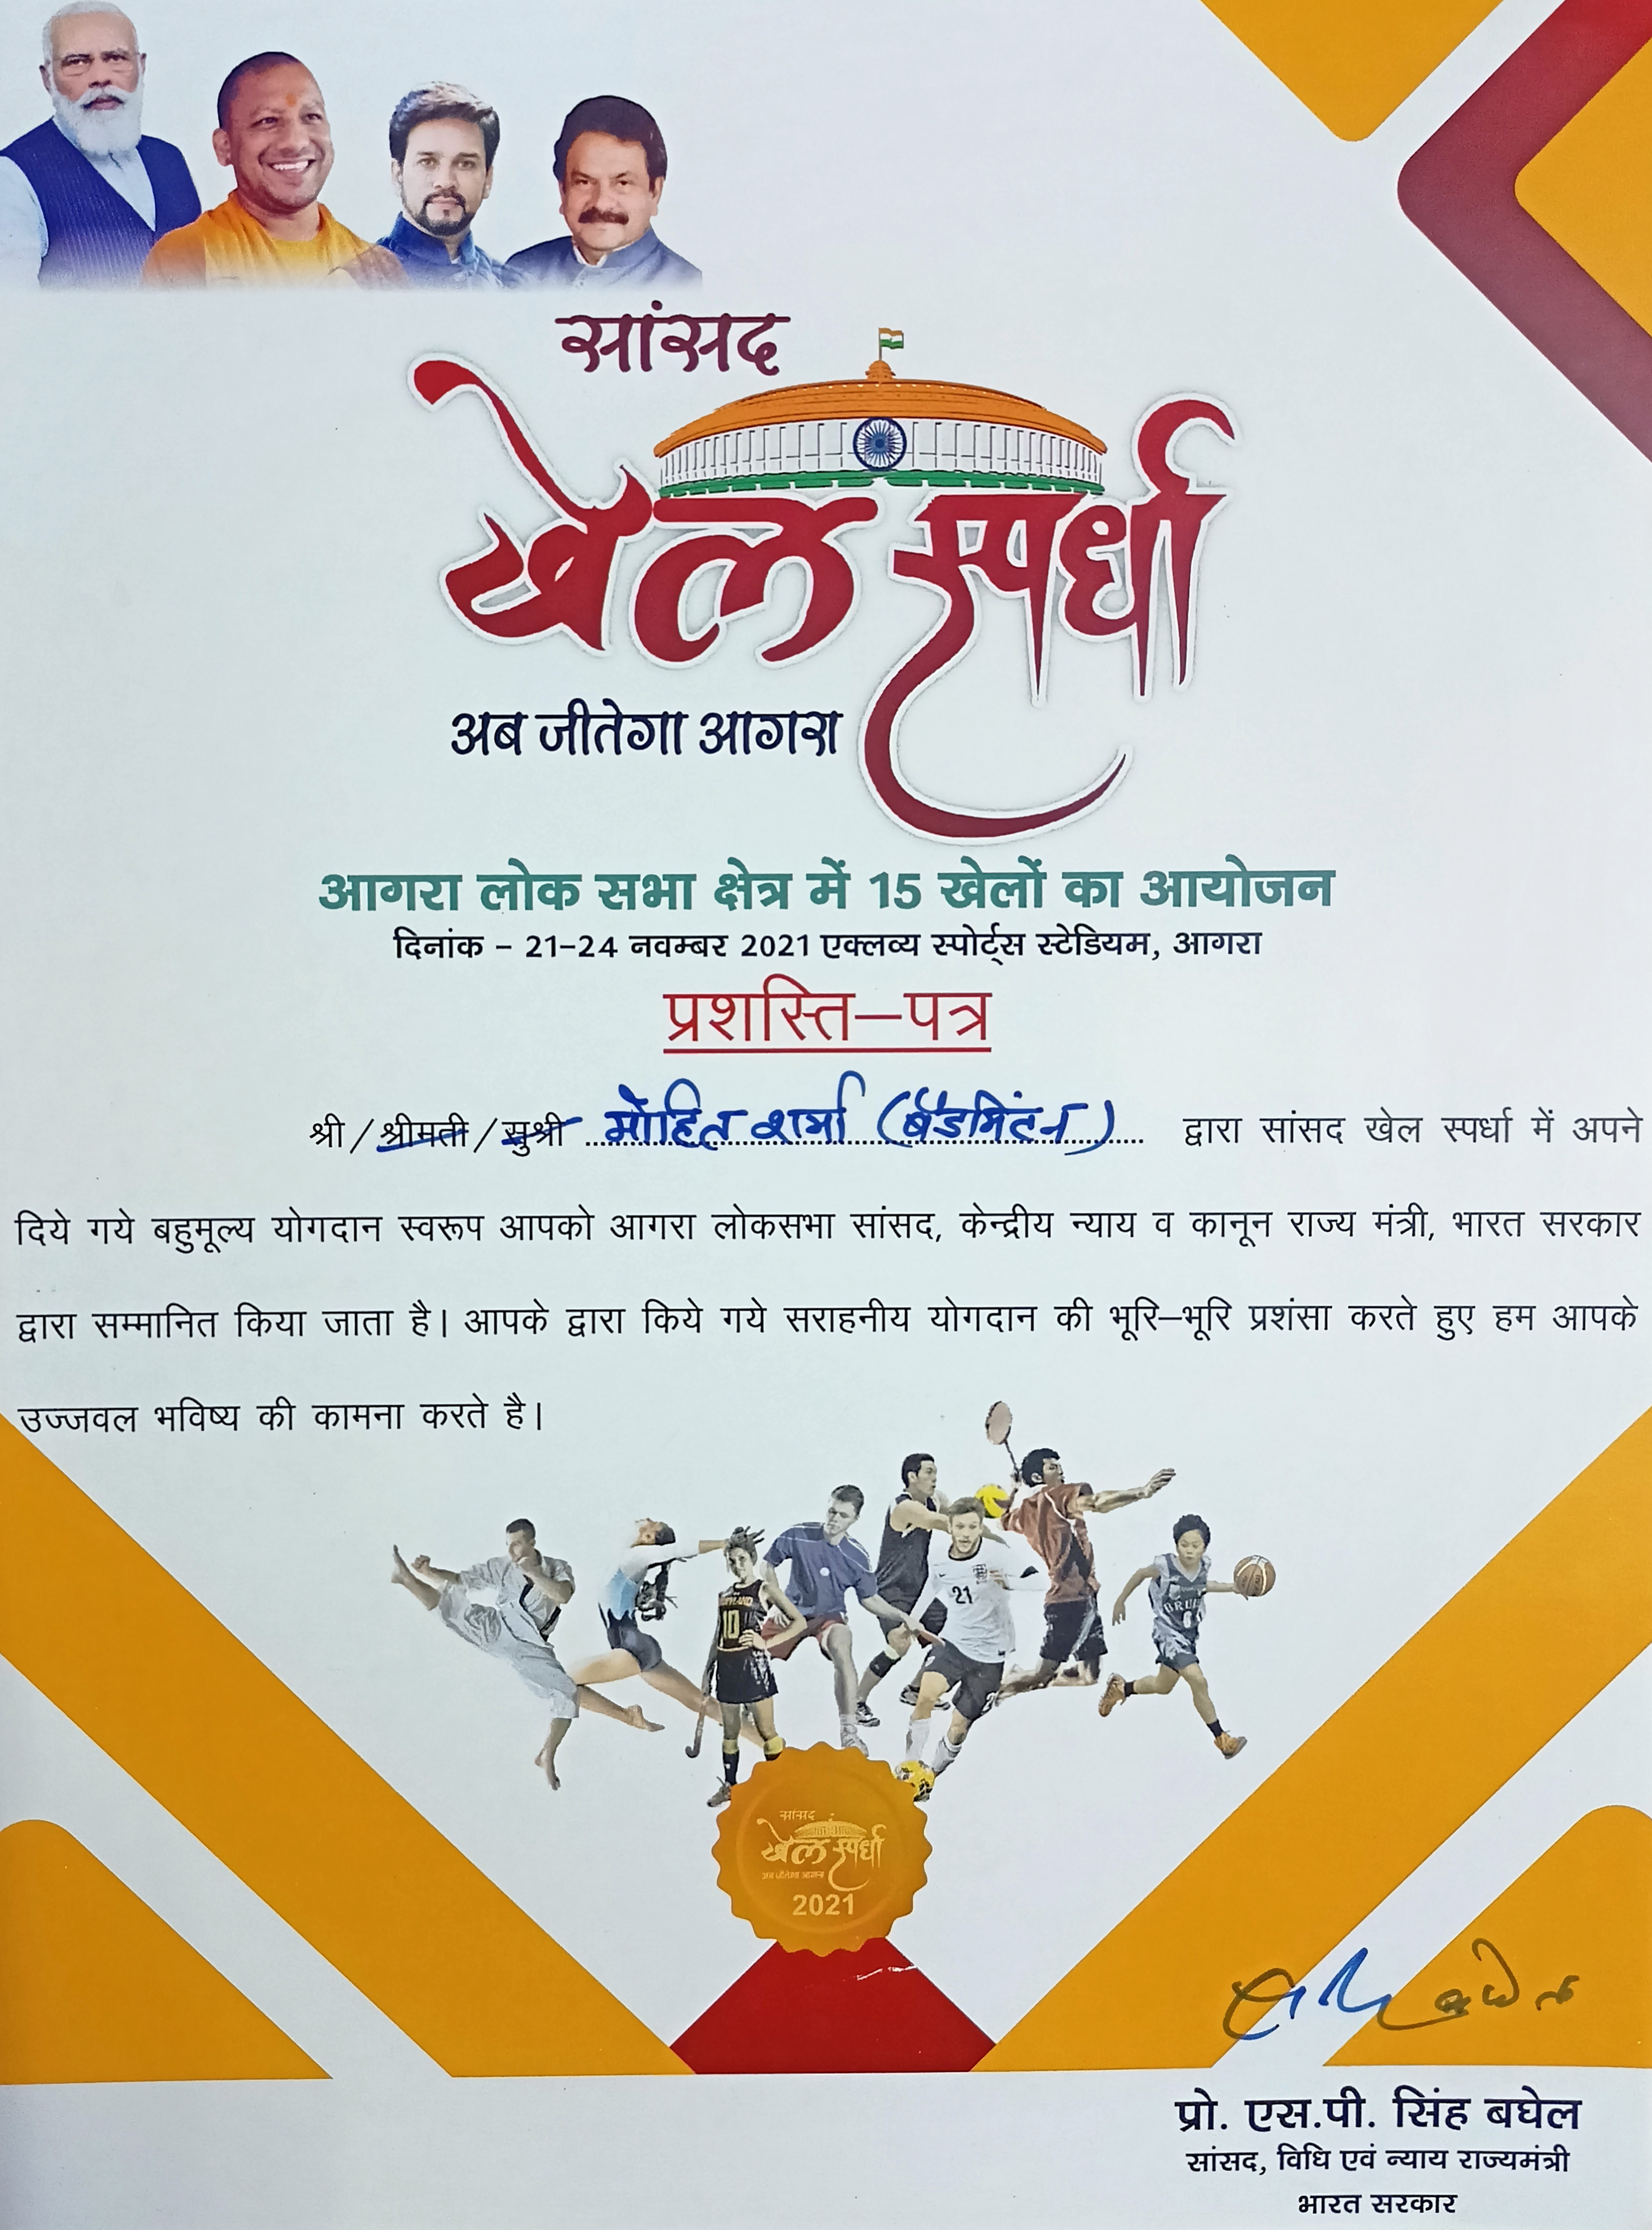 सांसद
खेल स्पर्धा
अब जीतेगा आगरा
आगरा लोक सभा क्षेत्र में 15 खेलों का आयोजन
दिनांक - 21-24 नवम्बर 2021 एक्लव्य स्पोर्ट्स स्टेडियम, आगरा
प्रशस्ति-पत्र
श्री / श्रीमती / सुश्री मोहित शर्मा (बैडमिंटन) द्वारा सांसद खेल स्पर्धा में अपने
दिये गये बहुमूल्य योगदान स्वरूप आपको आगरा लोकसभा सांसद, केन्द्रीय न्याय व कानून राज्य मंत्री, भारत सरकार
द्वारा सम्मानित किया जाता है। आपके द्वारा किये गये सराहनीय योगदान की भूरि-भूरि प्रशंसा करते हुए हम आपके
उज्जवल भविष्य की कामना करते है।
21
10
सांसद
खेल स्पर्धा
अब जीतेगा आगरा
2021
प्रो. एस.पी. सिंह बघेल
सांसद, विधि एवं न्याय राज्यमंत्री
भारत सरकार